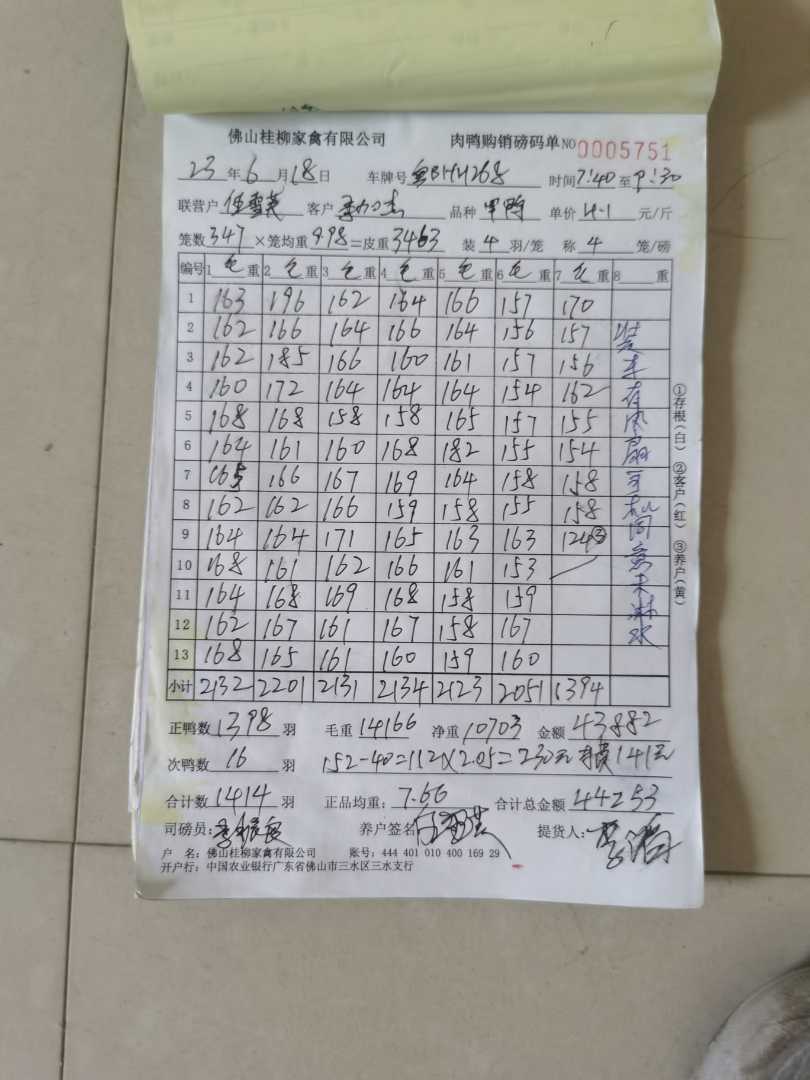 佛山桂柳家禽有限公司 肉鸭购销磅码单 NO 0005751
23年6月18日 车牌号 粤BHU268 时间 7:40至9:30
联营户 客户 品种 甲鸭 单价 4.1 元/斤
笼数 347 ×笼均重 9.98=皮重 3463 装 4 羽/笼 称 4 笼/磅
编号 1 毛重 2 毛重 3 毛重 4 毛重 5 毛重 6 毛重 7 毛重 8 重
1 163 196 162 164 166 157 170
2 162 166 164 166 164 156 157
3 162 185 166 160 161 157 156
4 160 172 164 164 164 154 162
5 168 168 158 158 165 157 155
6 164 161 160 168 182 155 154
7 165 166 167 169 164 158 158
8 162 162 166 159 158 155 158
9 164 164 171 165 163 163 124③
10 168 161 162 166 161 153
11 164 168 169 168 158 159
12 162 167 161 167 158 167
13 168 165 161 160 159 160
小计 2132 2201 2131 2134 2123 2051 1394
装车有风扇司机同意不淋水
①存根(白) ②客户(红) ③养户(黄)
正鸭数 1398 羽 毛重 14166 净重 10703 金额 43882
次鸭数 16 羽 152-40=112×2.05=230元 141元
合计数 1414 羽 正品均重: 7.66 合计总金额 44253
司磅员: 养户签名 提货人:
户 名: 佛山桂柳家禽有限公司 账号: 444 401 010 400 169 29
开户行: 中国农业银行广东省佛山市三水区三水支行